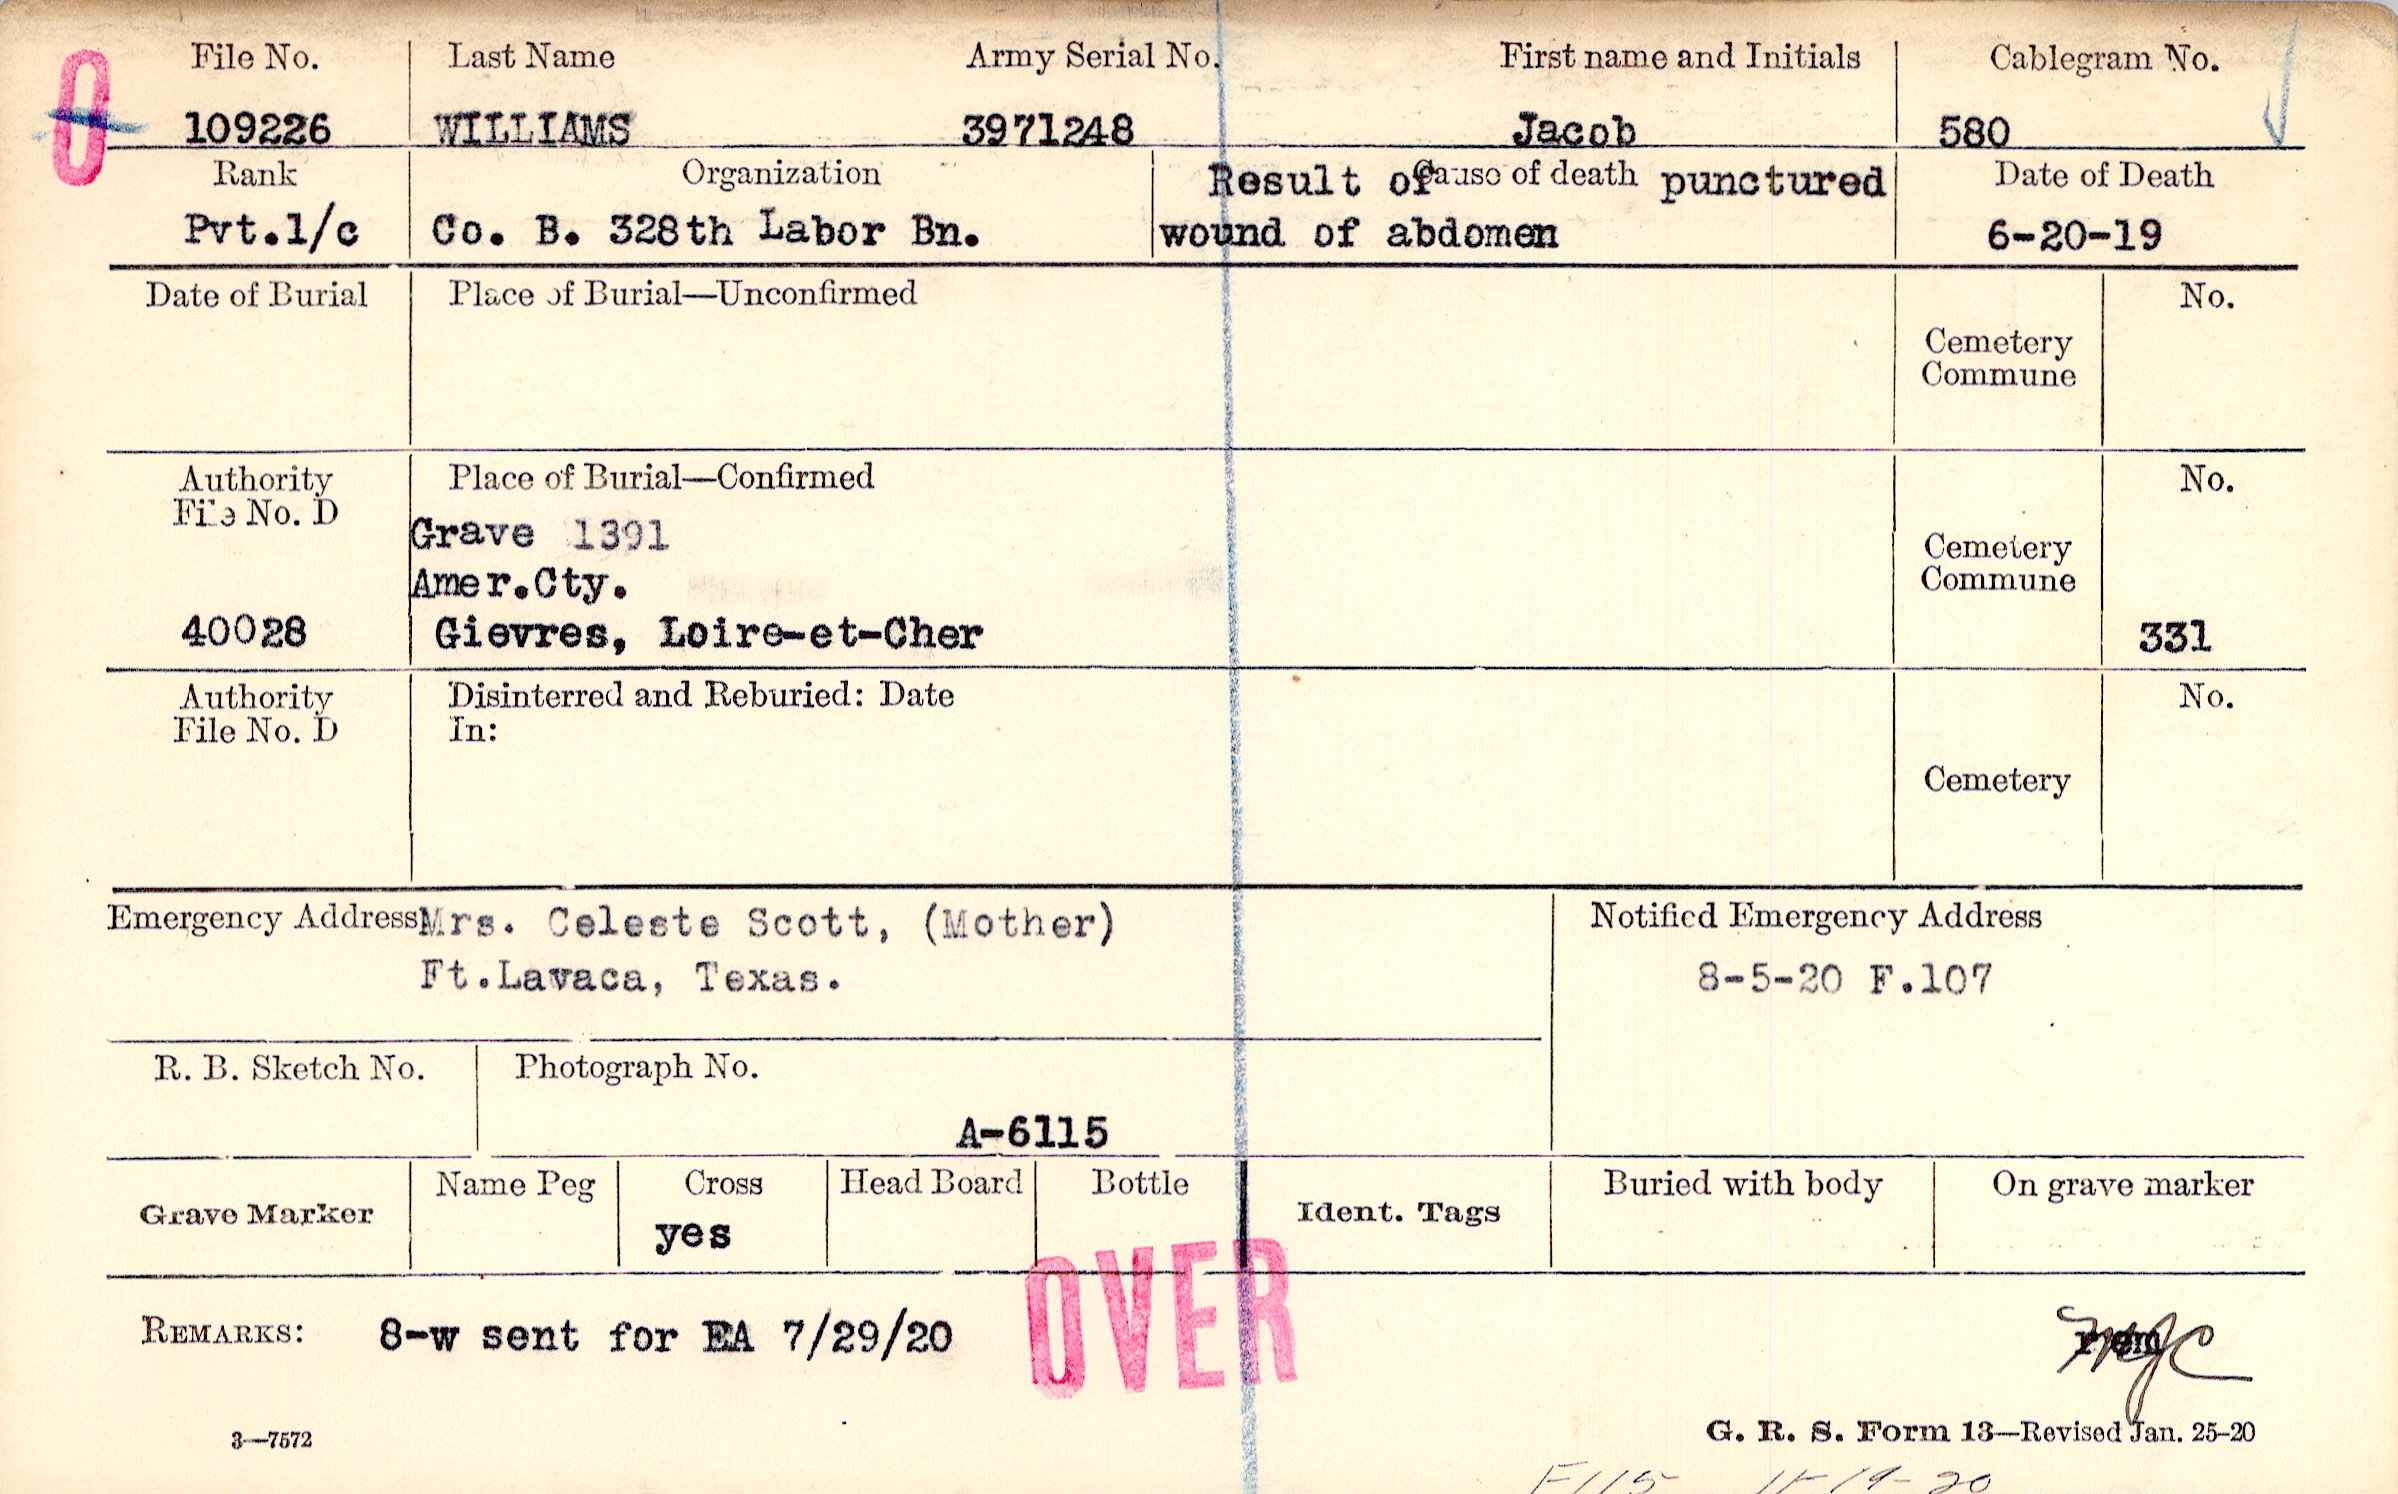 O
File No. Last Name Army Serial No. First name and Initials Cablegram No.
109226 WILLIAMS 3971248 Jacob 580
Rank Organization Cause of death Date of Death
Result of punctured
Pvt.1/c Co. B. 328th Labor Bn. wound of abdomen 6-20-19
Date of Burial Place of Burial—Unconfirmed No.
Cemetery
Commune
Authority Place of Burial—Confirmed No.
File No. D
Grave 1391
Cemetery
Amer.Cty. Commune
40028 Gievres, Loire-et-Cher 331
Authority Disinterred and Reburied: Date No.
File No. D In:
Cemetery
Emergency Address Mrs. Celeste Scott, (Mother) Notified Emergency Address
Ft.Lavaca, Texas. 8-5-20 F.107
R. B. Sketch No. Photograph No.
A-6115
Name Peg Cross Head Board Bottle Buried with body On grave marker
Grave Marker Ident. Tags
yes
OVER
REMARKS: 8-w sent for EA 7/29/20
3—7572 G. R. S. Form 13—Revised Jan. 25-20
F115